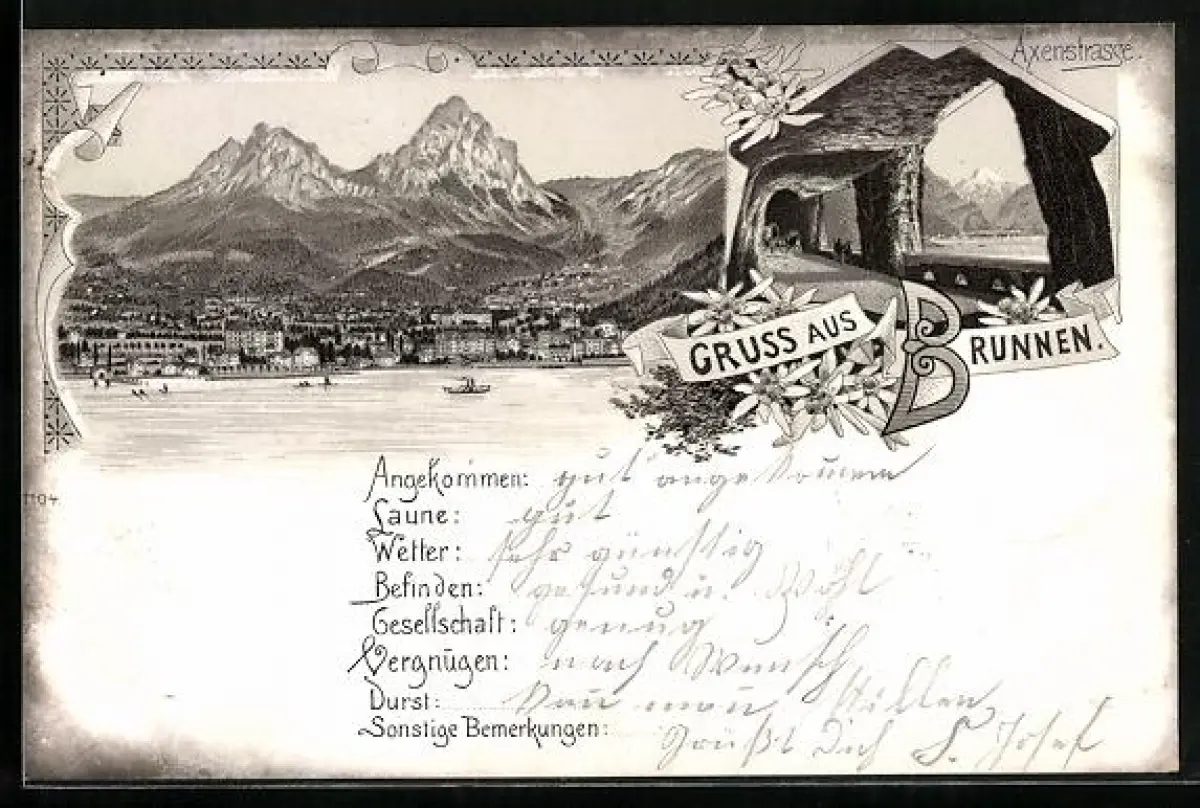 Axenstrasse.
GRUSS AUS BRUNNEN.
1104
Angekommen: gut angekommen
Laune: gut
Wetter: sehr günstig
Befinden: gesund u. Wohl
Gesellschaft: genug
Vergnügen: nach Wunsch
Durst: kan man stillen
Sonstige Bemerkungen:
Grüßt Dich Josef